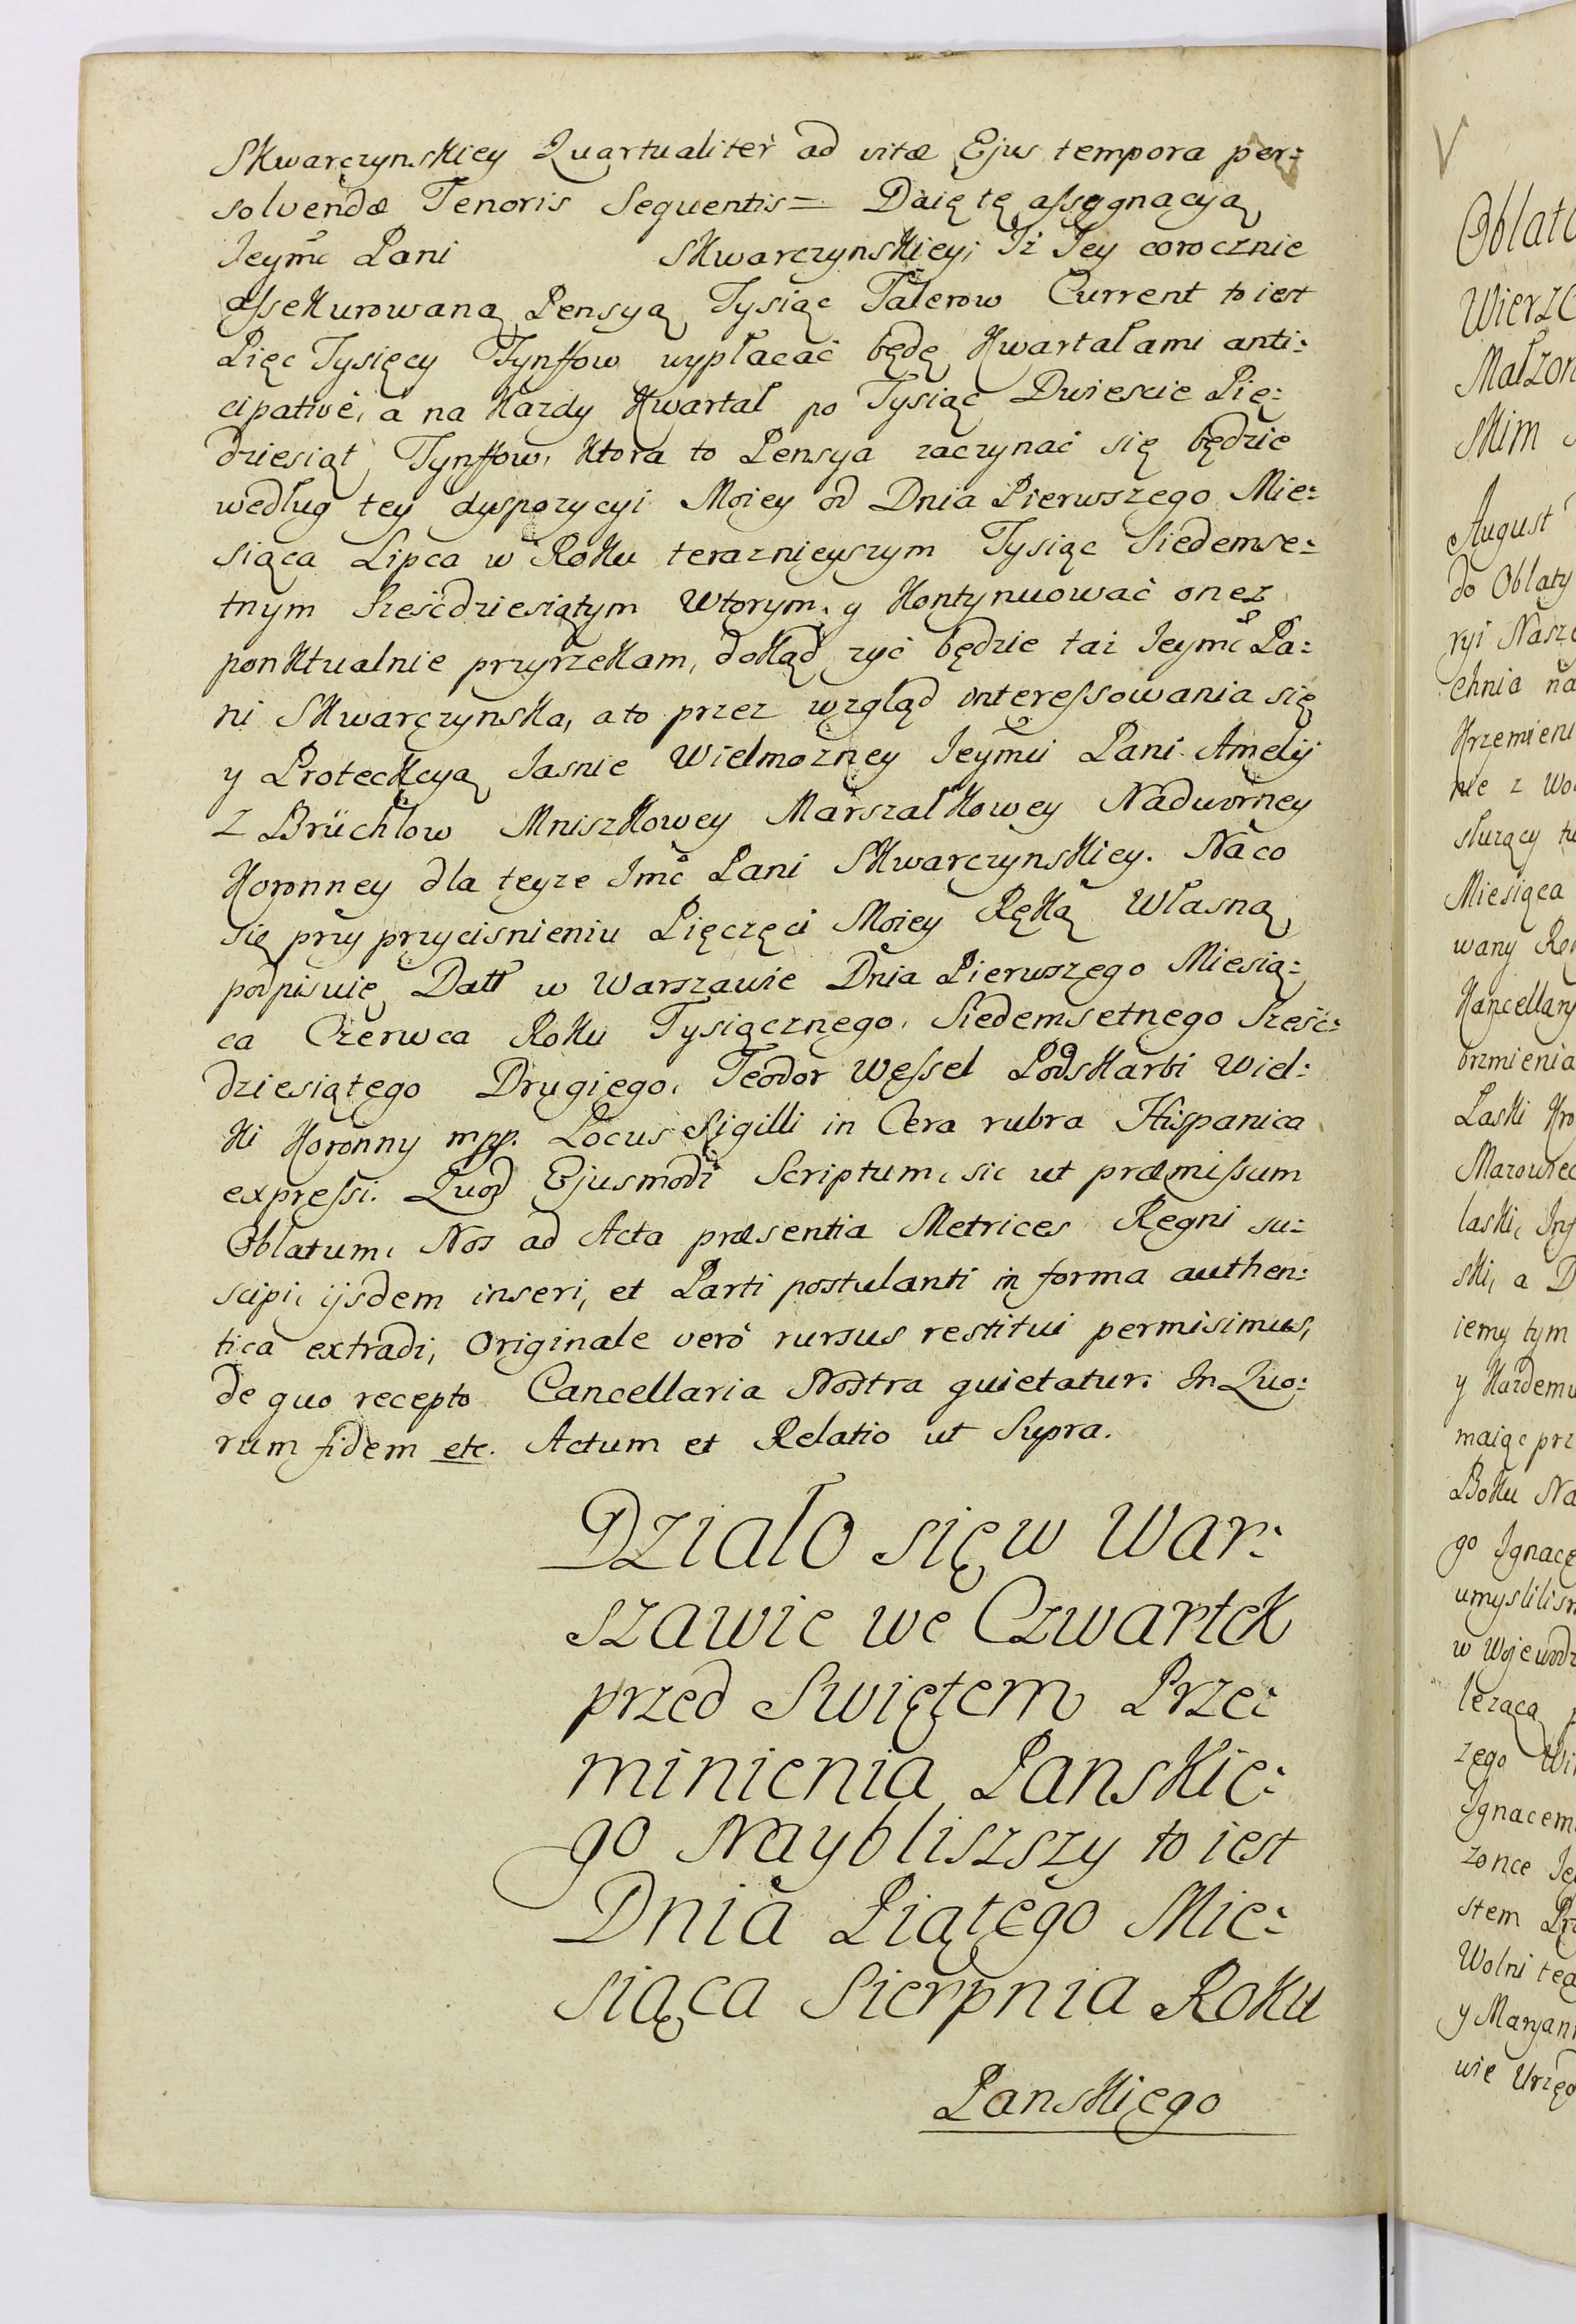 Skwarczynskiey Quartualiter ad vitæ Ejus tempora per:
solvendæ Tenoris Sequentis = Daię tę assygnacyą
Jeymć Pani Skwarczynskiey, Iż Jey corocznie
assekurowaną Pensyą Tysiąc Talerow Current to iest
Pięc Tysięcy Tynffow wypłacać będę Kwartałami anti:
cipativè, a na każdy Kwartał po Tysiąc Dwiescie Pię:
dziesiąt Tynffow, ktora to Pensya zaczynać się będzie
według tey dyspozycyi Moiey od Dnia Pierwszego Mie:
siąca Lipca w Roku teraznieyszym Tysiąc Siedemse:
tnym Sześćdziesiątym Wtorym, y kontynuować onęż
ponktualnie przyrzekam, dokąd zyć będzie taż Jeymć Pa:
ni Skwarczynska, a to przez wzgląd interessowania się
y Protekcyą Jasnie Wielmozney Jeymci Pani Amelij
z Brüchlow Mniszkowey Marszałkowey Nadworney
Koronney dla teyze Jmć Pani Skwarczynskiey. Na co
się przy przycisnieniu Pięczęci Moiey Ręką Własną
podpisuię Datt w Warszawie Dnia Pierwszego Miesią:
ca Czerwca Roku Tysiącznego, Siedemsetnego Sześć:
dziesiątego Drugiego. Teodor Wessel Podskarbi Wiel:
ki Koronny mpp. Locus Sigilli in Cera rubra Hispanica
expressi. Quod Ejusmodi Scriptum, sic ut præmissum
Oblatum, Nos ad Acta præsentia Metrices Regni su:
scipi, ijsdem inseri, et Parti postulanti in forma authen:
tica extradi, Originale verò rursus restitui permisimus,
de quo recepto Cancellaria Nostra quietatur. In Quo:
rum fidem etc. Actum et Relatio ut Supra.
Działo się w War:
szawie we Czwartek
przed Swiętem Prze:
minienia Panskie:
go Naybliszszy to iest
Dnia Piątego Mie:
siąca Sierpnia Roku
Panskiego
Wierzc
August
do Oblaty
chnia na
nie z Wo
Miesiąca
brzmienia
iemy tym
maiąc prz
Boku Na
Ignacem
Wolni te